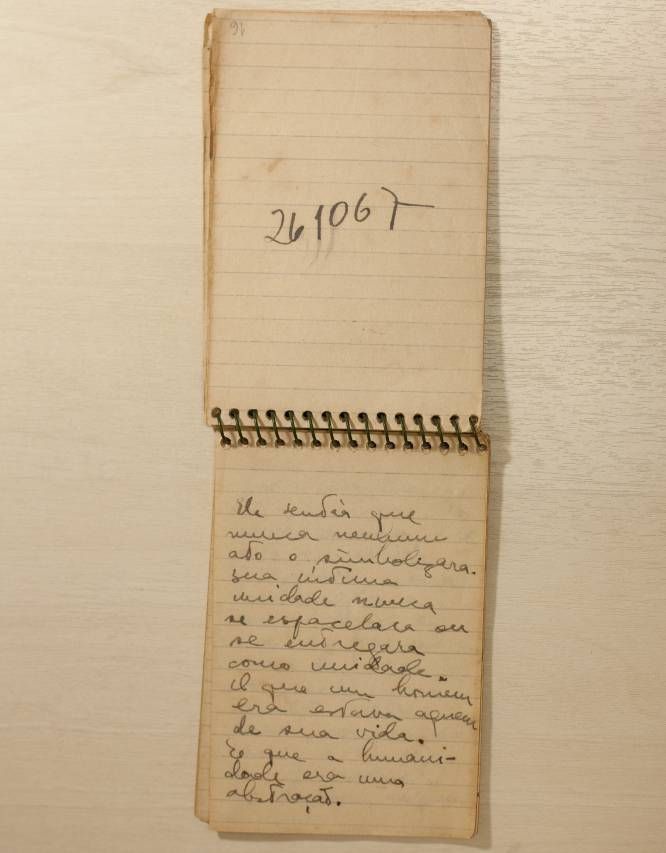 96
261067
Ele sentia que
nunca nenhum
ato o simbolizara.
Sua íntima
unidade nunca
se espacelara ou
se entregara
como unidade.
O que um homem
era estava aquem
de sua vida.
E que a humani-
dade era uma
abstração.